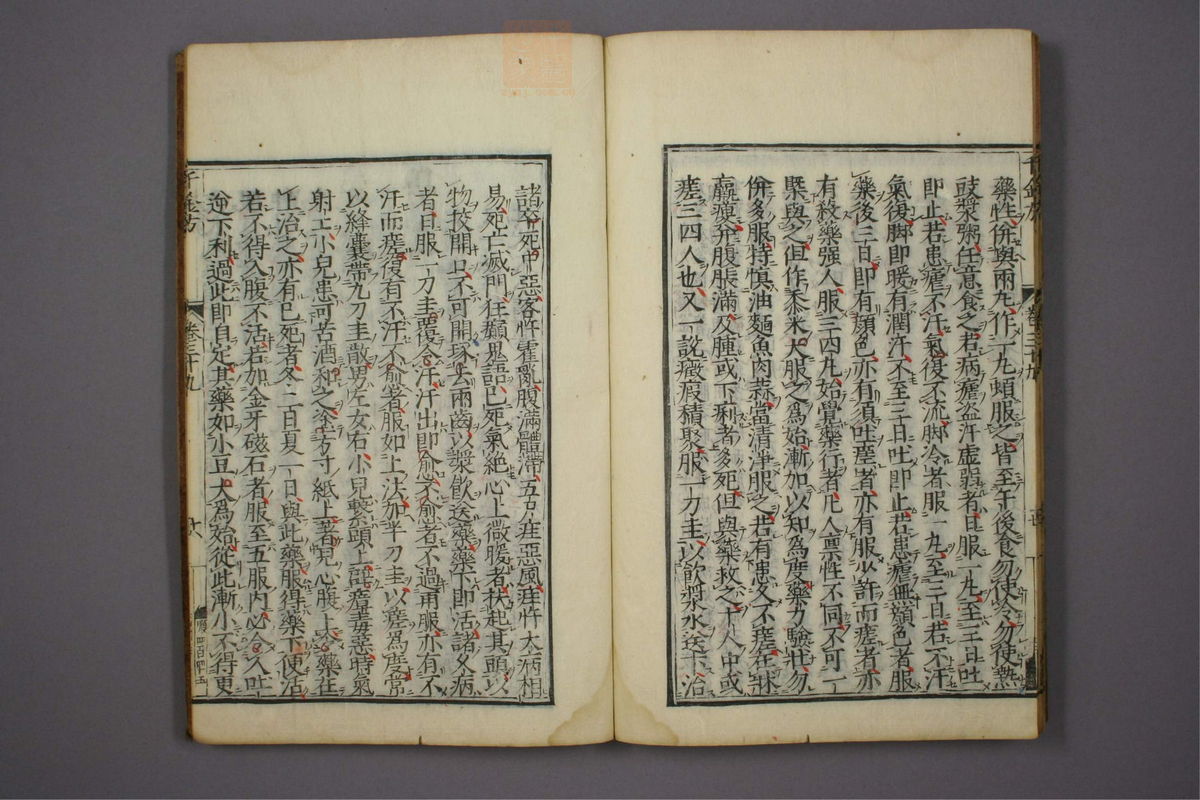 藥性併與兩丸作一丸頓服之皆至午後食勿使冷勿使熱
豉漿粥任意食之若病瘧盜汗虛弱者日服一丸至三日吐
即止若患瘧不汗氣復不流脚冷者服一丸至三日若不汗
氣復脚即暖有潤汗不至三日吐即止若患瘧無顏色者服
藥後三日即有顏色亦有須吐瘥者亦有服少許而瘥者亦
有殺藥强人服三四丸始覺藥行者凡人稟性不同不可一
槩與之但作黍米大服之為始漸加以知為度藥力驗壯勿
併多服特慎油麵魚肉蒜當清淨服之若有患久不瘥在牀
羸瘦并腹脹滿及腫或下痢者多死但與藥救之十人中或
瘥三四人也又一說癥瘕積聚服一刀圭以飲漿水送下治
諸卒死中惡客忤霍亂腹滿體滯五尸疰惡風疰忤大病相
易死亡滅門狂癲鬼語巳死氣絶心上微暖者扶起其頭以
物挍開口不可開琢去兩齒以漿飲送藥藥下即活諸久病
者日服一刀圭覆令汗汗出即愈不愈者不過再服亦有不
汗而瘥復有不汗不愈者服如上法加半刀圭以瘥為度常
以絳囊帶九刀圭散男左女右小兒繫頭上辟瘴毒惡時氣
射工小兒患可苦酒和之塗方寸紙上著兒心腹上令藥在
上治之亦有巳死者冬二百夏一日與此藥服得藥下便活
若不得入腹不活若加金牙磁石者服至五服內必令人吐
逆下利過此即自定其藥如小豆大為始從此漸小不得更
卷三十九